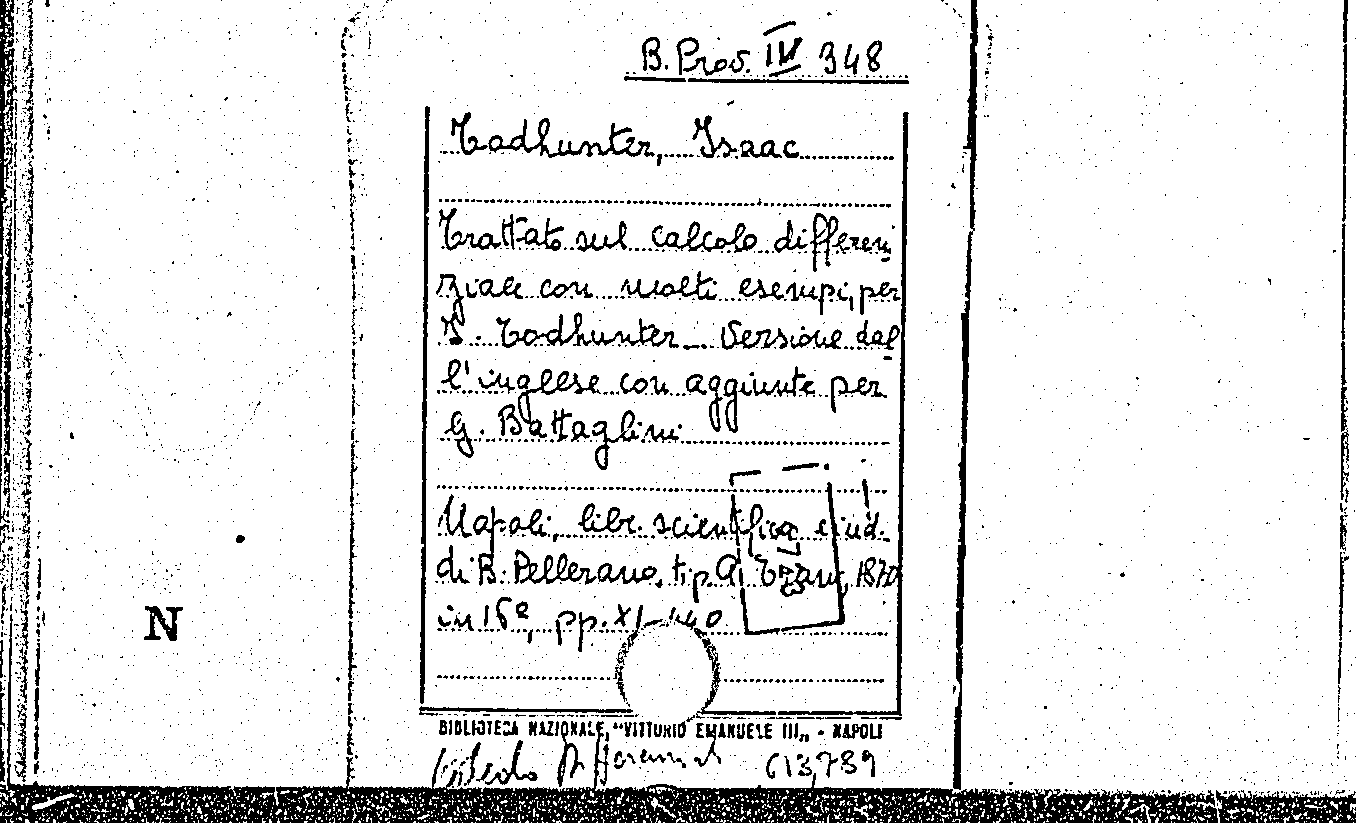 B. Prov. IV 348
Todhunter, Isaac
Trattato sul calcolo differen
ziale con molti esempi, per
I. Todhunter_ Versione dal
l'inglese con aggiunte per
G. Battaglini
Napoli, libr. scientifica e ind.
di B. Pellerano, tip. A. 1870
in 16º, pp. XI-440
N
BIBLIOTECA NAZIONALE "VITTORIO EMANUELE III„ - NAPOLI
613,789